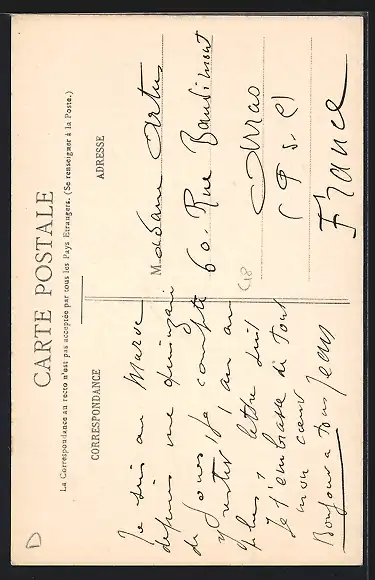 CARTE POSTALE
La Correspondance au recto n'est pas acceptée par tous les Pays Etrangers. (Se renseigner à la Poste.)
CORRESPONDANCE
Je suis au Maroc
depuis une quinzaine
de jours, je compte
y rester 1 an ou
plus, lettre suit
Je t'embrasse de tout
mon coeur
Bonjour à tous Jean
ADRESSE
Madame Artus
60. Rue Baudimont
Arras
(P. d. C)
France
D